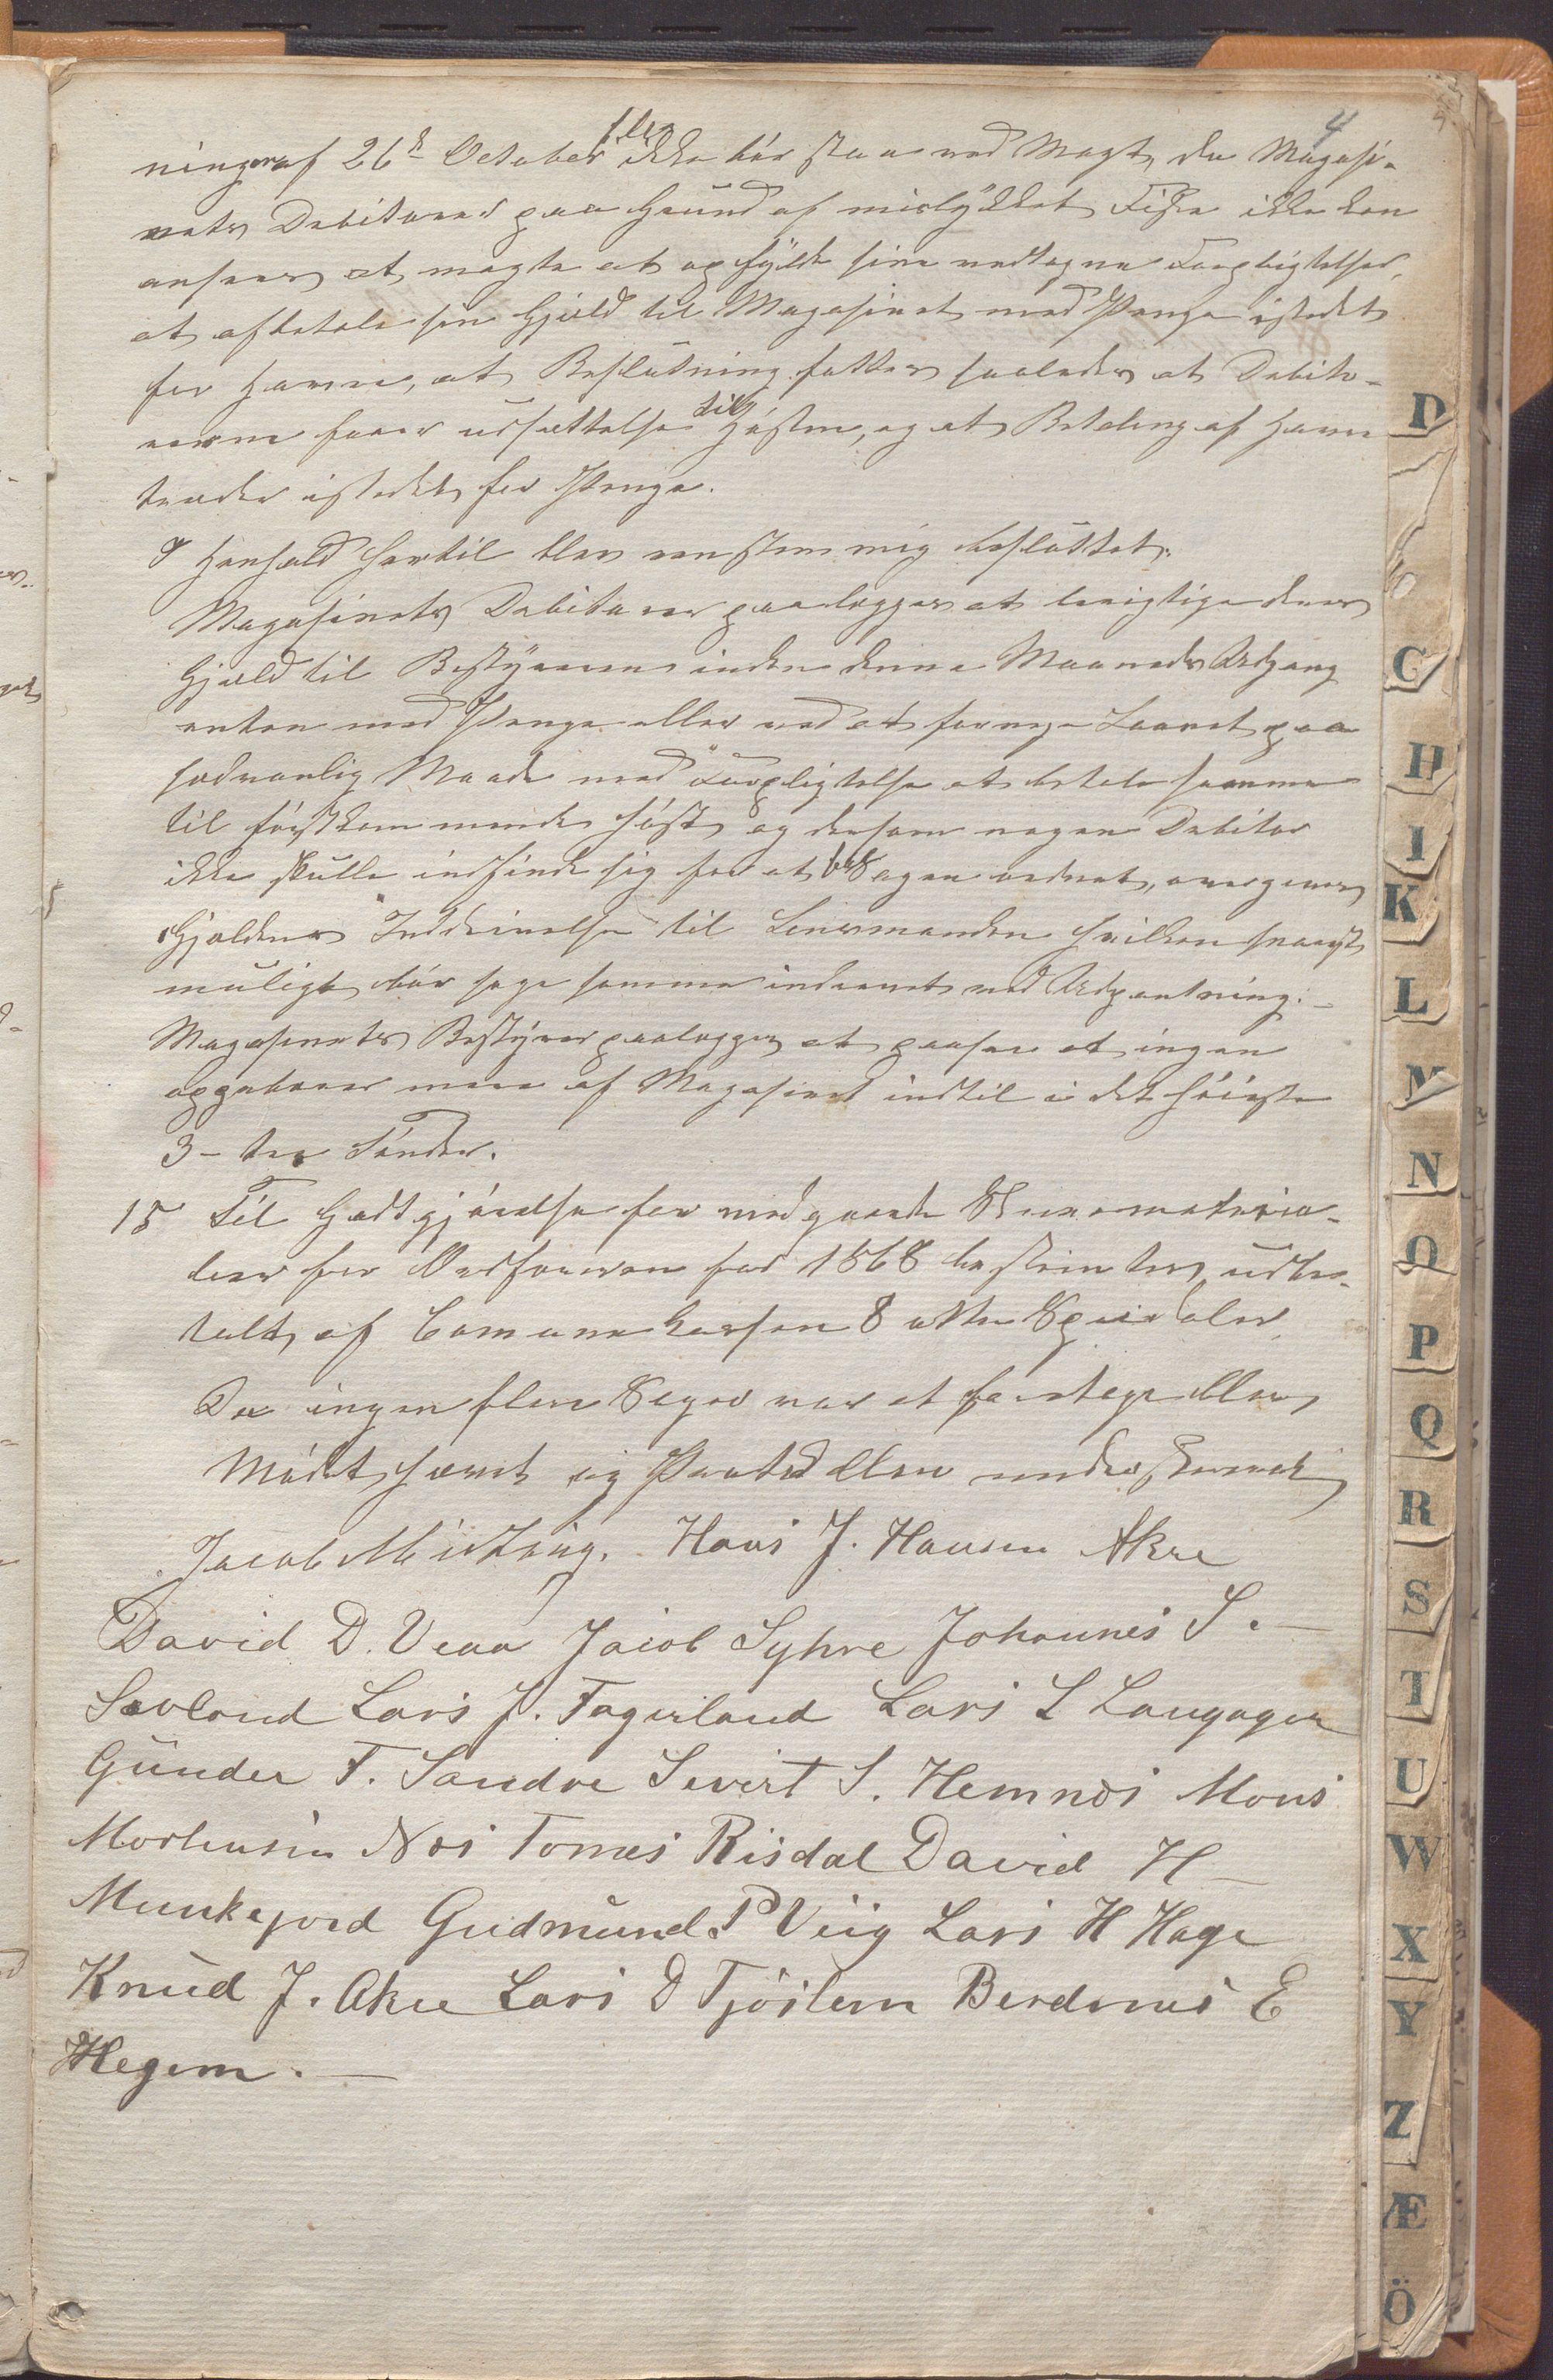 4
ningen af 26de October f. A. ikke bør staa ved Magt, da Magasi-
nets Debitorer paa Grund af mislykket Fiske ikke kan
ansees at magte at opfylde sine vedtagne Forpligtelser,
at afbetale sin Gjæld til Magasinet med Penge istedet
for Havre, at Beslutning fattes saaledes at Debito-
rerne faaer udsættelse til Høsten, og at Betaling af Havre
træder istedet for Penge.
I Henhold hertil blev eenstemmig besluttet.
Magasinets Debitorer paalægges at berigtige deres
Gjæld til Bestyreren inden denne Maaneds Udgang
enten med Penge eller ved at fornye Laanet paa
sædvanlig Maade med Forpligtelse at betale samme
til førstkommende Høst, og dersom nogen Debitor
ikke skulle indfinde sig for at faa Sagen ordnet, overgives
Gjældens Inddrivelse til Lensmanden hvilken snarest
muligt bør søge samme inddrevet ved Udpantning. -
Magasinets Bestyrer paalægges at paasee at ingen
opgaves mere af Magasinet indtil i det høieste
3 - tre Tønder.
15 Til Godtgjørelse for medgaaede Skrivemateria-
lier for Ordføreren for 1868 bestemtes udbe-
talt af Communekassen 8 otte Spesidaler
Da ingen flere Sager var at foretage blev
Mødet hævet og Protokollen underskrevet
Jacob Mistång. Hans J. Hansen Akre
David D. Veaa Jacob Syhre Johannes S. -
Savland Lars J. Fagerland Lars L Langager
Gunder T. Sandve Severt S. Hemnæs Mons
Mortensen Næs Tomes Risdal David H -
Munkejord Gudmund P Viig Lars H Hage
Knud J. Akre Lars D Tjøstem Berdinus E
Hegem. -
D
C
H
I
K
L
M
N
O
P
Q
R
S
T
U
W
X
Y
Z
Æ
Ö